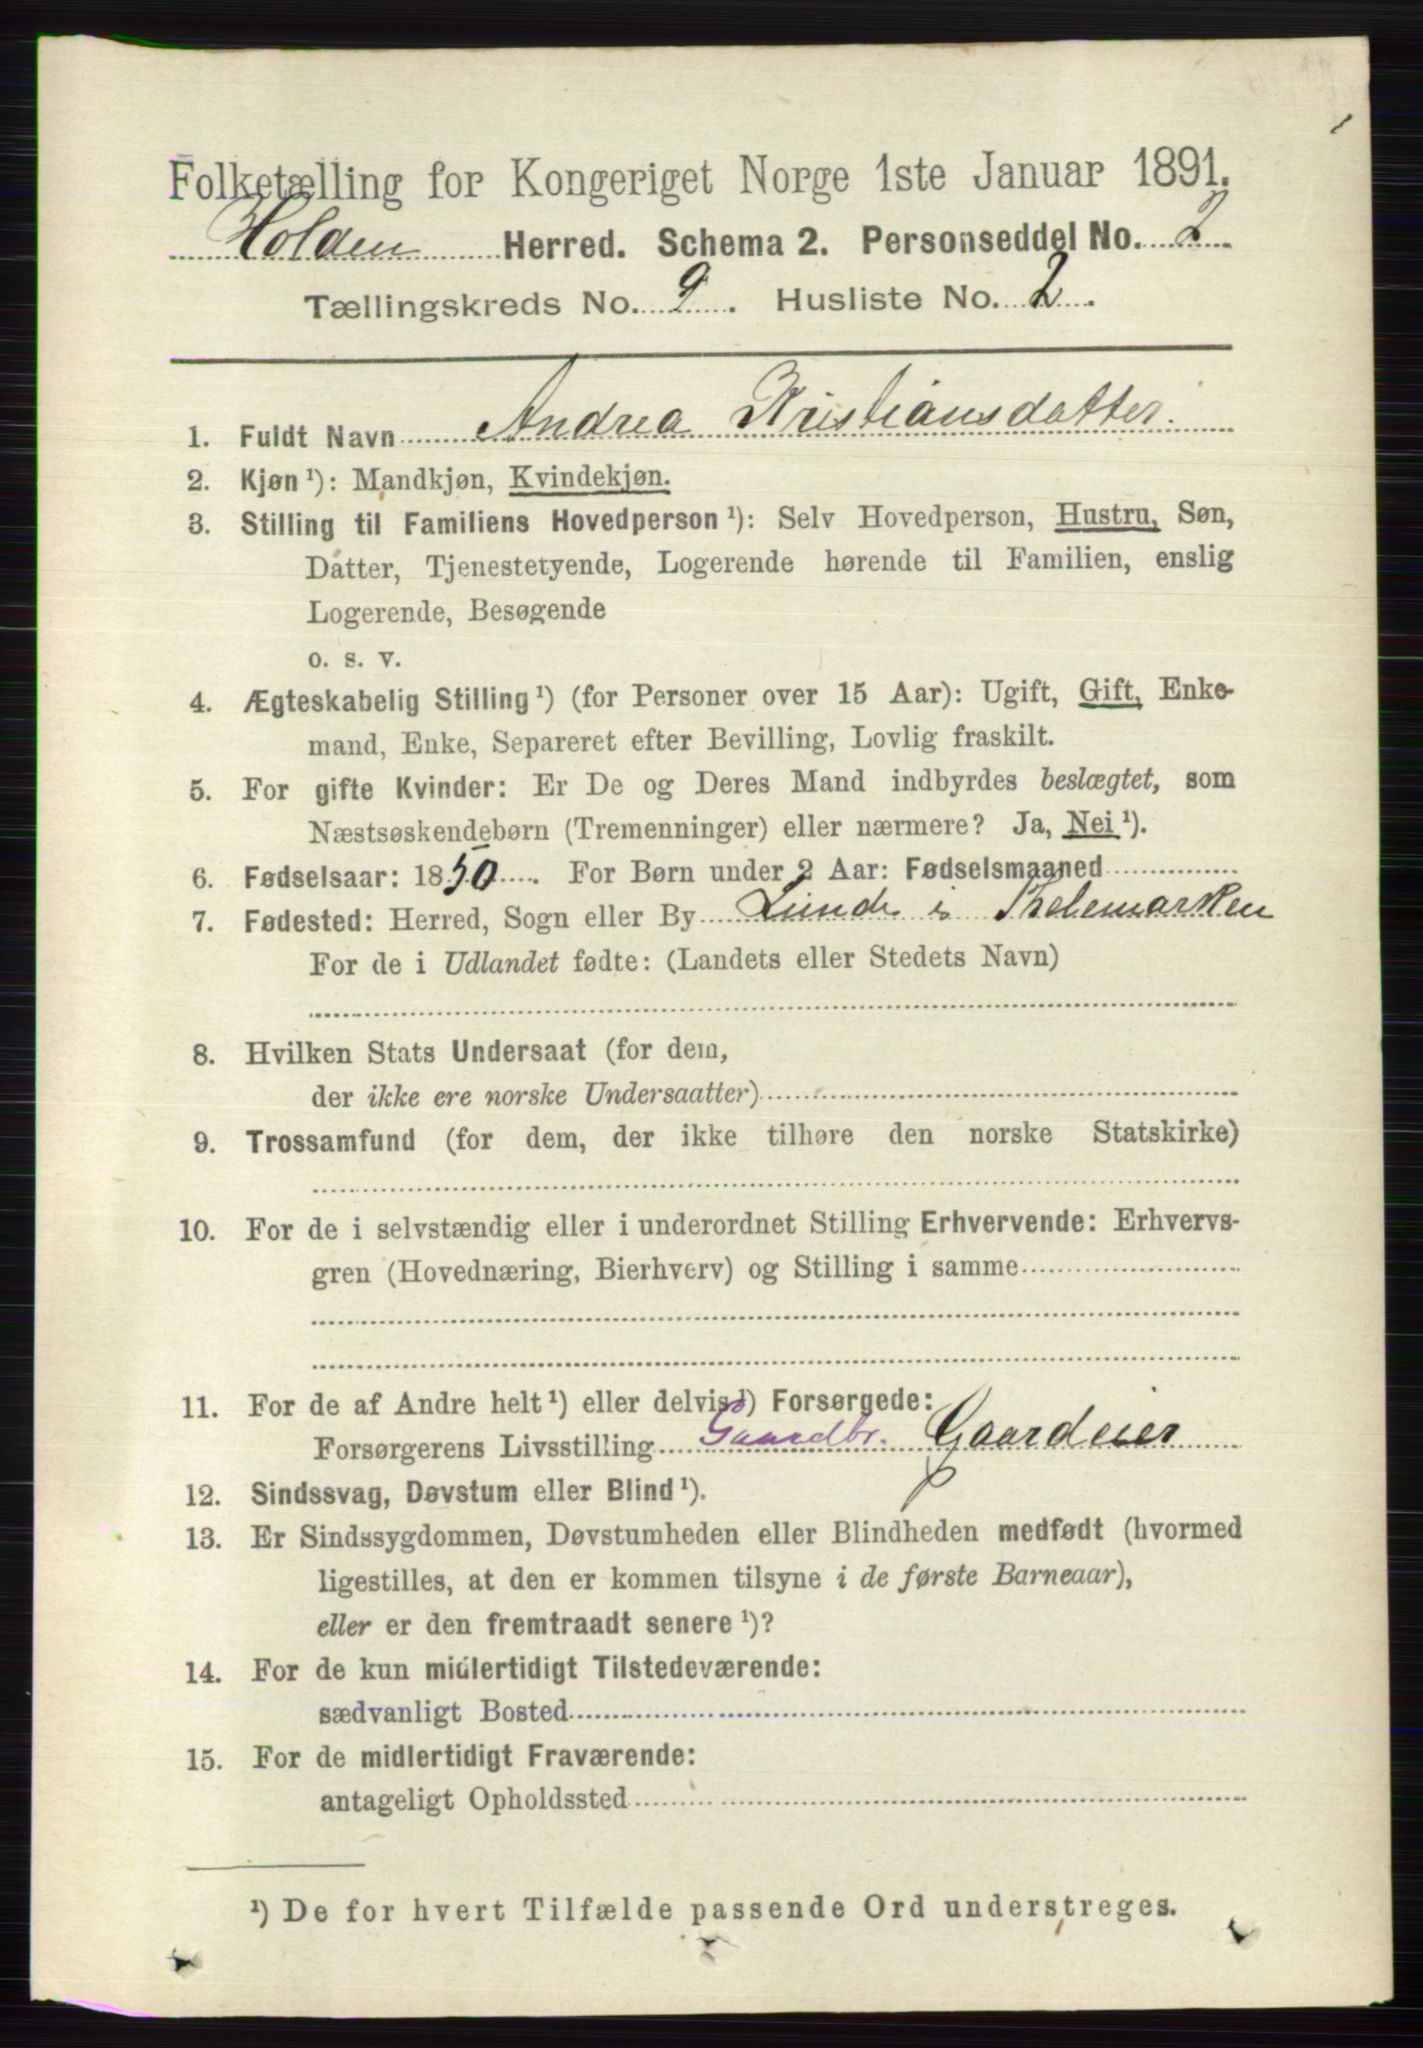 Folketælling for Kongeriget Norge 1ste Januar 1891.
Holden Herred. Schema 2. Personseddel No. 2
Tællingskreds No. 9. Husliste No. 2.
1. Fuldt Navn Andrea Kristiansdatter.
2. Kjøn ¹): Mandkjøn, Kvindekjøn.
3. Stilling til Familiens Hovedperson ¹): Selv Hovedperson, Hustru, Søn,
Datter, Tjenestetyende, Logerende hørende til Familien, enslig
Logerende, Besøgende
o. s. v.
4. Ægteskabelig Stilling ¹) (for Personer over 15 Aar): Ugift, Gift, Enke-
mand, Enke, Separeret efter Bevilling, Lovlig fraskilt.
5. For gifte Kvinder: Er De og Deres Mand indbyrdes beslægtet, som
Næstsøskendebørn (Tremenninger) eller nærmere? Ja, Nei ¹).
6. Fødselsaar: 1850. For Børn under 2 Aar: Fødselsmaaned
7. Fødested: Herred, Sogn eller By Lunde i Thelemarken
For de i Udlandet fødte: (Landets eller Stedets Navn)
8. Hvilken Stats Undersaat (for dem,
der ikke ere norske Undersaatter)
9. Trossamfund (for dem, der ikke tilhøre den norske Statskirke)
10. For de i selvstændig eller i underordnet Stilling Erhvervende: Erhvervs-
gren (Hovednæring, Bierhverv) og Stilling i samme
11. For de af Andre helt ¹) eller delvis ¹) Forsørgede:
Forsørgerens Livsstilling Gaardbr. Gaardeier
12. Sindssvag, Døvstum eller Blind ¹).
13. Er Sindssygdommen, Døvstumheden eller Blindheden medfødt (hvormed
ligestilles, at den er kommen tilsyne i de første Barneaar),
eller er den fremtraadt senere ¹)?
14. For de kun midlertidigt Tilstedeværende:
sædvanligt Bosted
15. For de midlertidigt Fraværende:
antageligt Opholdssted
¹) De for hvert Tilfælde passende Ord understreges.